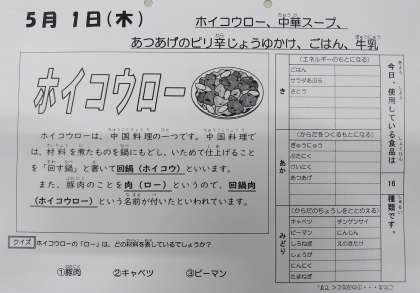 5月1日(木)
ホイコウロー、中華スープ、
あつあげのピリ辛じょうゆかけ、ごはん、牛乳
ホイコウロー
ホイコウローは、中国料理の一つです。中国料理で
は、材料を煮たものを鍋にもどし、いためて仕上げること
を「回す鍋」と書いて回鍋(ホイコウ)といいます。
また、豚肉のことを肉(ロー)というので、回鍋肉
(ホイコウロー)という名前が付いたといわれています。
クイズ ホイコウローの「ロー」は、どの材料を表しているでしょうか?
①豚肉 ②キャベツ ③ピーマン
今日、使用している食品は
16
種類です。
き
(エネルギーのもとになる)
ごはん
サラダあぶら
さとう
あか
(からだをつくるもとになる)
ぎゅうにゅう
ぶたにく
けいにく
あつあげ
みどり
(からだのちょうしをととのえる)
キャベツ チンゲンサイ
ピーマン にんじん
しろねぎ えのきたけ
しょうが
にんにく
たまねぎ